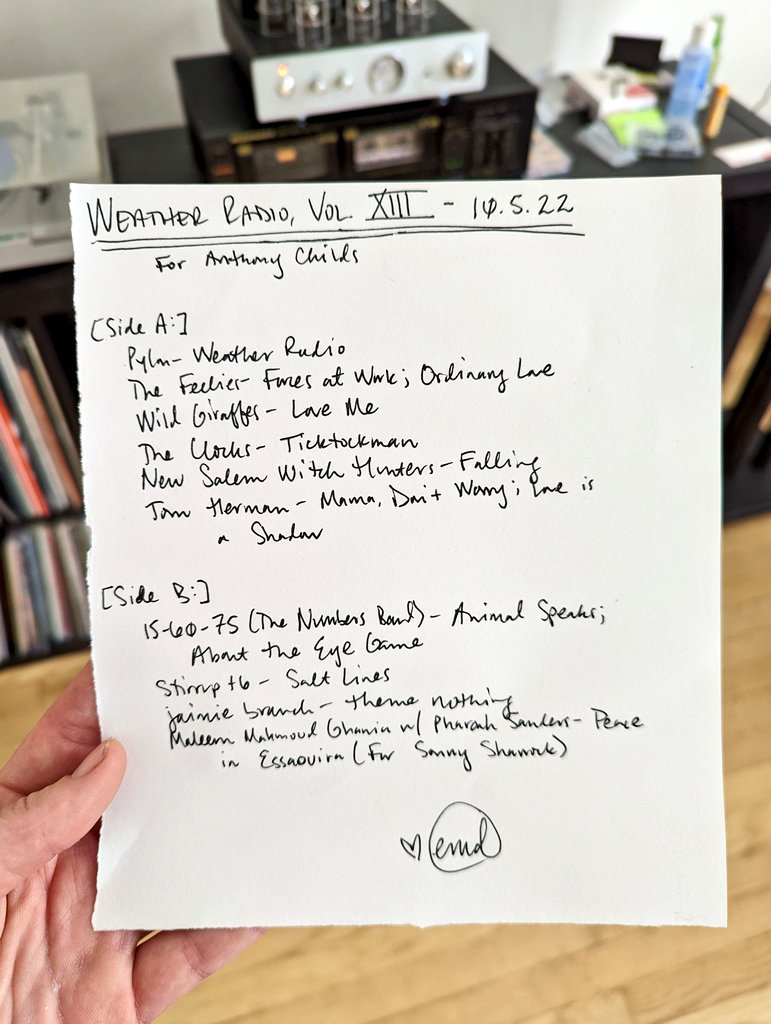 WEATHER RADIO, VOL. XIII - 10.5.22
For Anthony Childs
[Side A:]
Pylon - Weather Radio
The Feelies - Forces at Work; Ordinary Love
Wild Giraffes - Love Me
The Clocks - Ticktockman
New Salem Witch Hunters - Falling
Tom Herman - Mama, Don't Worry; Love is
a Shadow
[Side B:]
15-60-75 (The Numbers Band) - Animal Speaks;
About the Eye Game
Stirrup +6 - Salt Lines
jaimie branch - theme nothing
Maleem Mahmoud Ghania w/ Pharoah Sanders - Peace
in Essaouira (For Sonny Sharrock)
♡ emd